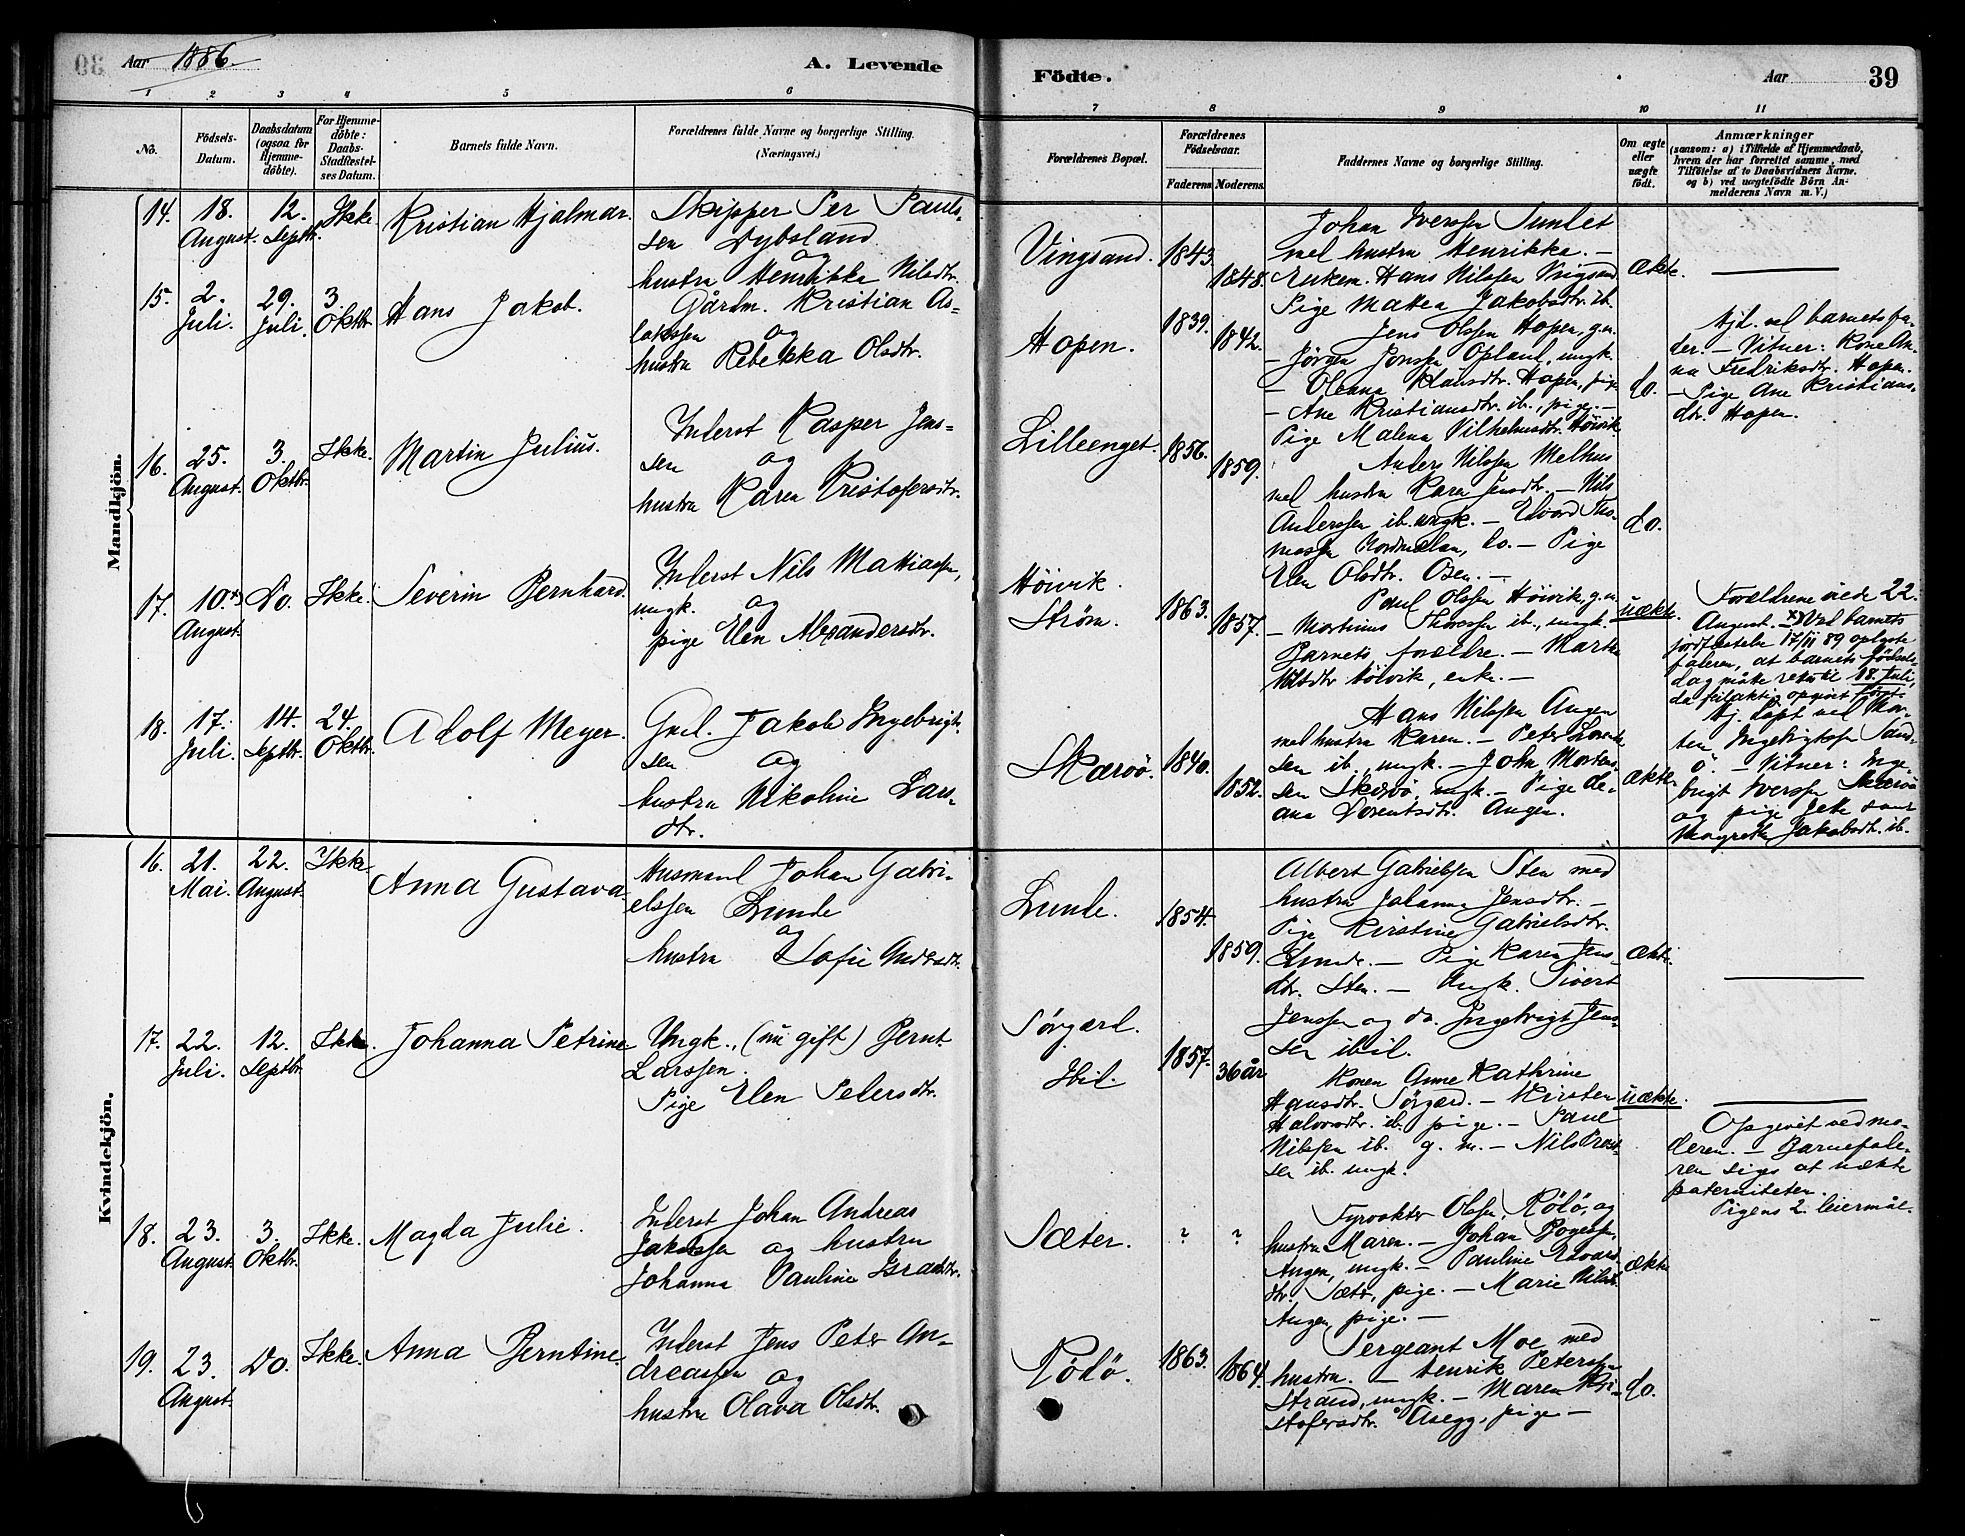 Aar 1886.
A. Levende
Födte.
Aar
39
1 2 3 4 5 6 7 8 9 10 11
No.
Födsels-
Datum.
Daabsdatum
(ogsaa for
Hjemme-
döbte).
For Hjemme-
döbte:
Daabs-
Stadfæstel-
ses Datum.
Barnets fulde Navn.
Forældrenes fulde Navne og borgerlige Stilling.
(Næringsvei.)
Forældrenes Bopæl.
Forældrenes
Födselsaar.
Faderens. Moderens.
Faddernes Navne og borgerlige Stilling.
Om ægte
eller
uægte
födt.
Anmærkninger
(saasom: a) i Tilfælde af Hjemmedaab,
hvem der har forrettet samme, med
Tilföielse af to Daabsvidners Navne.
og b) ved uægtefödte Börn An-
melderens Navn m. V.)
Mandkjön.
14.
18.
August.
12.
Septbr.
Ikke.
Kristian Hjalmar.
Skipper Per Pauls-
sen Dybsland
og
hustru Henrikke Nilsdtr.
Vingsand.
1843.
1848.
Johan Iverssen Sumlet
med hustru Henrikke. –
Enkem. Hans Nilssen Vingsand
Pige Mattea Jakobsdtr. ib.
ækte.
15.
2.
Juli.
29.
Juli.
3.
Oktbr.
Hans Jakob.
Gårdm. Kristian As-
lakssen
og
hustru Rebekka Olsdtr.
Hopen.
1839.
1842.
Jens Olssen Hopen, g.m.
– Jörgen Jonssen Opland, ungk.
– Oleanna Hansdtr. Hopen, pige
– Ane Kristiansdtr. ib., pige. –
Pige Malena Vilhelmsdtr. Höivik.
do.
Hjd. ved barnets fa-
der. – Vitner: Kone An-
na Fredriksdtr. Hopen.
– Pige Ane Kristians-
dtr. Hopen.
16.
25.
August.
3.
Oktbr.
Ikke.
Martin Julius.
Inderst Kasper Jens-
sen og
hustru Karen Kristofersdtr.
Lilleenget.
1856.
1859.
Anders Nilssen Melhus
med hustru Karen Jensdtr. – Nils
Anderssen ib. ungk. – Edvard Tho-
massen Nordmelan, do. – Pige
Elen Olsdtr. Osen. –
do.
17.
10. x)
August.
Do.
Ikke.
Severin Bernhard.
Inderst Nils Mattiassen,
ungk. og
pige Elen Alexandersdtr.
Höivik
Ström.
1863.
1857.
Paul Olssen Höivik, g.m.
– Martinus Thoressen ib., ungk.
Barnets forældre. – Marta
Nilsdtr. Höivik, enke. –
uækte.
Forældrene viede 22.
August. – x) Ved barnets
jordfæstelse 17/11 89 oplyste
faderen, at barnets födsels-
dag måtte rettes til 18. Juli,
da feilaktig opgivet först.
18.
17.
Juli.
14.
Septbr.
24.
Oktbr.
Adolf Meyer.
Grd. Jakob Ingebrigt-
sen og
hustru Nikoline Lars-
dtr.
Skærvö.
1840.
1852.
Hans Nilssen Angen
med hustru Karen. – Peter Lorents-
sen ib., ungk. – John Mortens-
sen Skærvö, ungk. – Pige De-
ana Lorentsdtr. Angen.
ækte.
Hj. döpt ved Mor-
ten Ingebrigtssen Sand-
ö. – Vitner: Inge-
brigt Iverssen Skærvö
og pige Jette samt
Margrete Jakobsdtr. ib.
Kvindekjön.
16.
21.
Mai.
22.
August.
Ikke.
Anna Gustava
Husmand Johan Gabri-
elssen Lunde
og
hustru Sofie Andersdtr.
Lunde.
1854.
1859.
Albert Gabrielssen Sten med
hustru Johanna Jensdtr. –
Pige Kirstine Gabrielsdtr.
Lunde. – Pige Karen Jens-
dtr. Sten. – Ungk. Sivert
Jenssen og do. Ingebrigt Jens-
sen ibid.
ækte.
17.
22.
Juli.
12.
Septbr.
Ikke.
Johanna Petrine
Ungk., (nu gift) Bernt
Larssen.
Pige Elen Petersdtr.
Sörgærd.
Ibid.
1857.
36 år
Konen Anne Kathrine
Hansdtr. Sörgærd. – Kirsten
Halvorsdtr. ib. pige. – Paul
Nilssen ib. g. m. – Nils Bernt-
sen ib. ungk.
uækte.
Opgivet ved mo-
deren. – Barnefade-
ren siges at nækte
paterniteten.
Pigens 2. leiermål.
18.
23.
August.
3.
Oktbr.
Ikke.
Magda Julie.
Inderst Johan Andreas
Jakobssen og hustru
Johanna Pauline Israelsdtr.
Sæter.
?
?
Fyrvakter Olssen, Rödö, og
hustru Maren. – Johan
Angen, ungk. – Pauline Edvards-
dtr. Sæter, pige. – Marie Nilsdtr.
Angen, pige. –
ækte.
19.
23.
August.
Do.
Ikke.
Anna Berntine.
Inderst Jens Peter An-
dreassen og
hustru Olava Olsdtr.
Rödö.
1863.
1864.
Sergeant Moe med
hustru. – Henrik Peterssen
Strand, ungk. – Maren Kri-
stofersdtr. Åsegg, pige –
do.